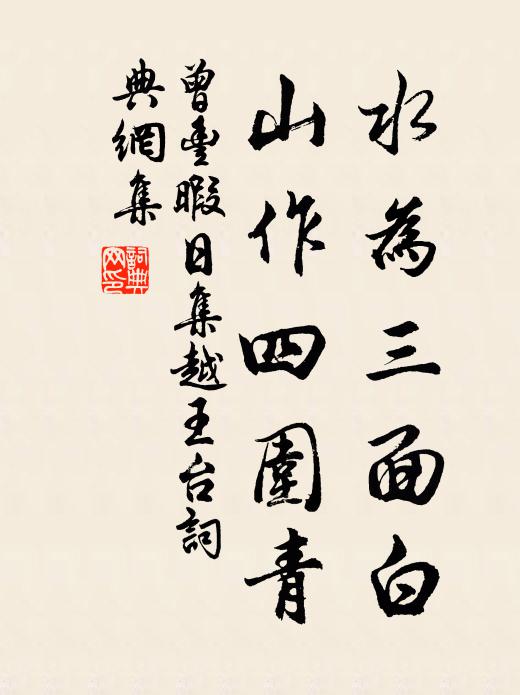 水為三面白
山作四圍青
曾豐暇日集越王台詞
典網集
詞典
网印